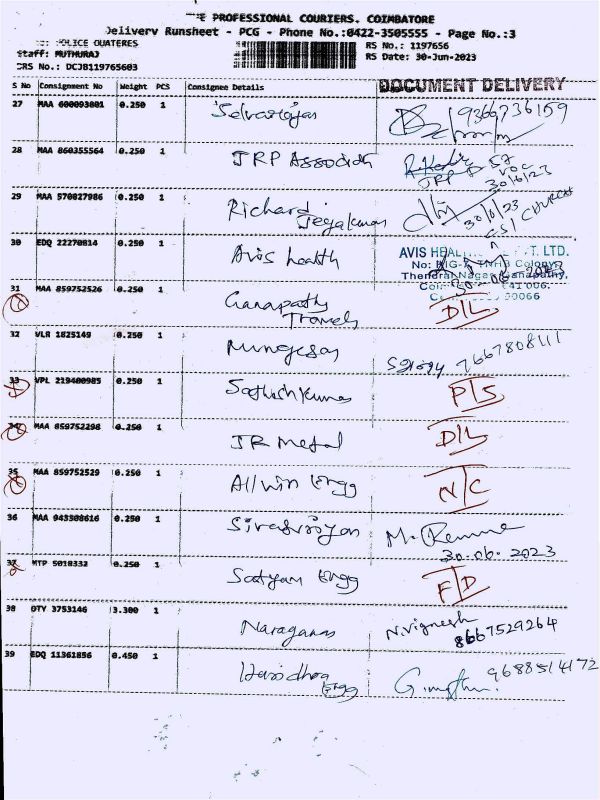 THE PROFESSIONAL COURIERS. COIMBATORE
Delivery Runsheet - PCG - Phone No.:0422-3505555 - Page No.:3
POLICE QUATERES
Staff: MUTHURAJ
DRS No.: DCJB119765603
RS No.: 1197656
RS Date: 30-Jun-2023
S No Consignment No Weight PCS Consignee Details DOCUMENT DELIVERY
27 MAA 600093801 0.250 1 Selvarajan 9366736159
28 MAA 860355564 0.250 1 JRP Associah
JRP
VOC
30/6/23
29 MAA 570827986 0.250 1 Richard Jeyakumar 30/6/23
CSI CHURCH
30 EDQ 22270814 0.250 1 Avis health
AVIS HEAL T. LTD.
No: TNHB Colony,
Thendral Nagar, Ganapathy,
641 006.
90066
30-06-2023
31 MAA 859752526 0.250 1 Ganapathy Travels D/L
32 VLR 1825149 0.250 1 Murugesan 7667808111
33 VPL 219400985 0.250 1 Sathishkumar P/S
34 MAA 859752298 0.250 1 JR Metal D/L
35 MAA 859752529 0.250 1 Allwin Engg N/C
36 MAA 943308616 0.250 1
30.06.2023
37 MTP 5018332 0.250 1 Satyam Engg F/D
38 OTY 3753146 3.300 1 Naraganan N.Vignesh
8667529264
39 EDQ 11361856 0.450 1 Engg 9688514172